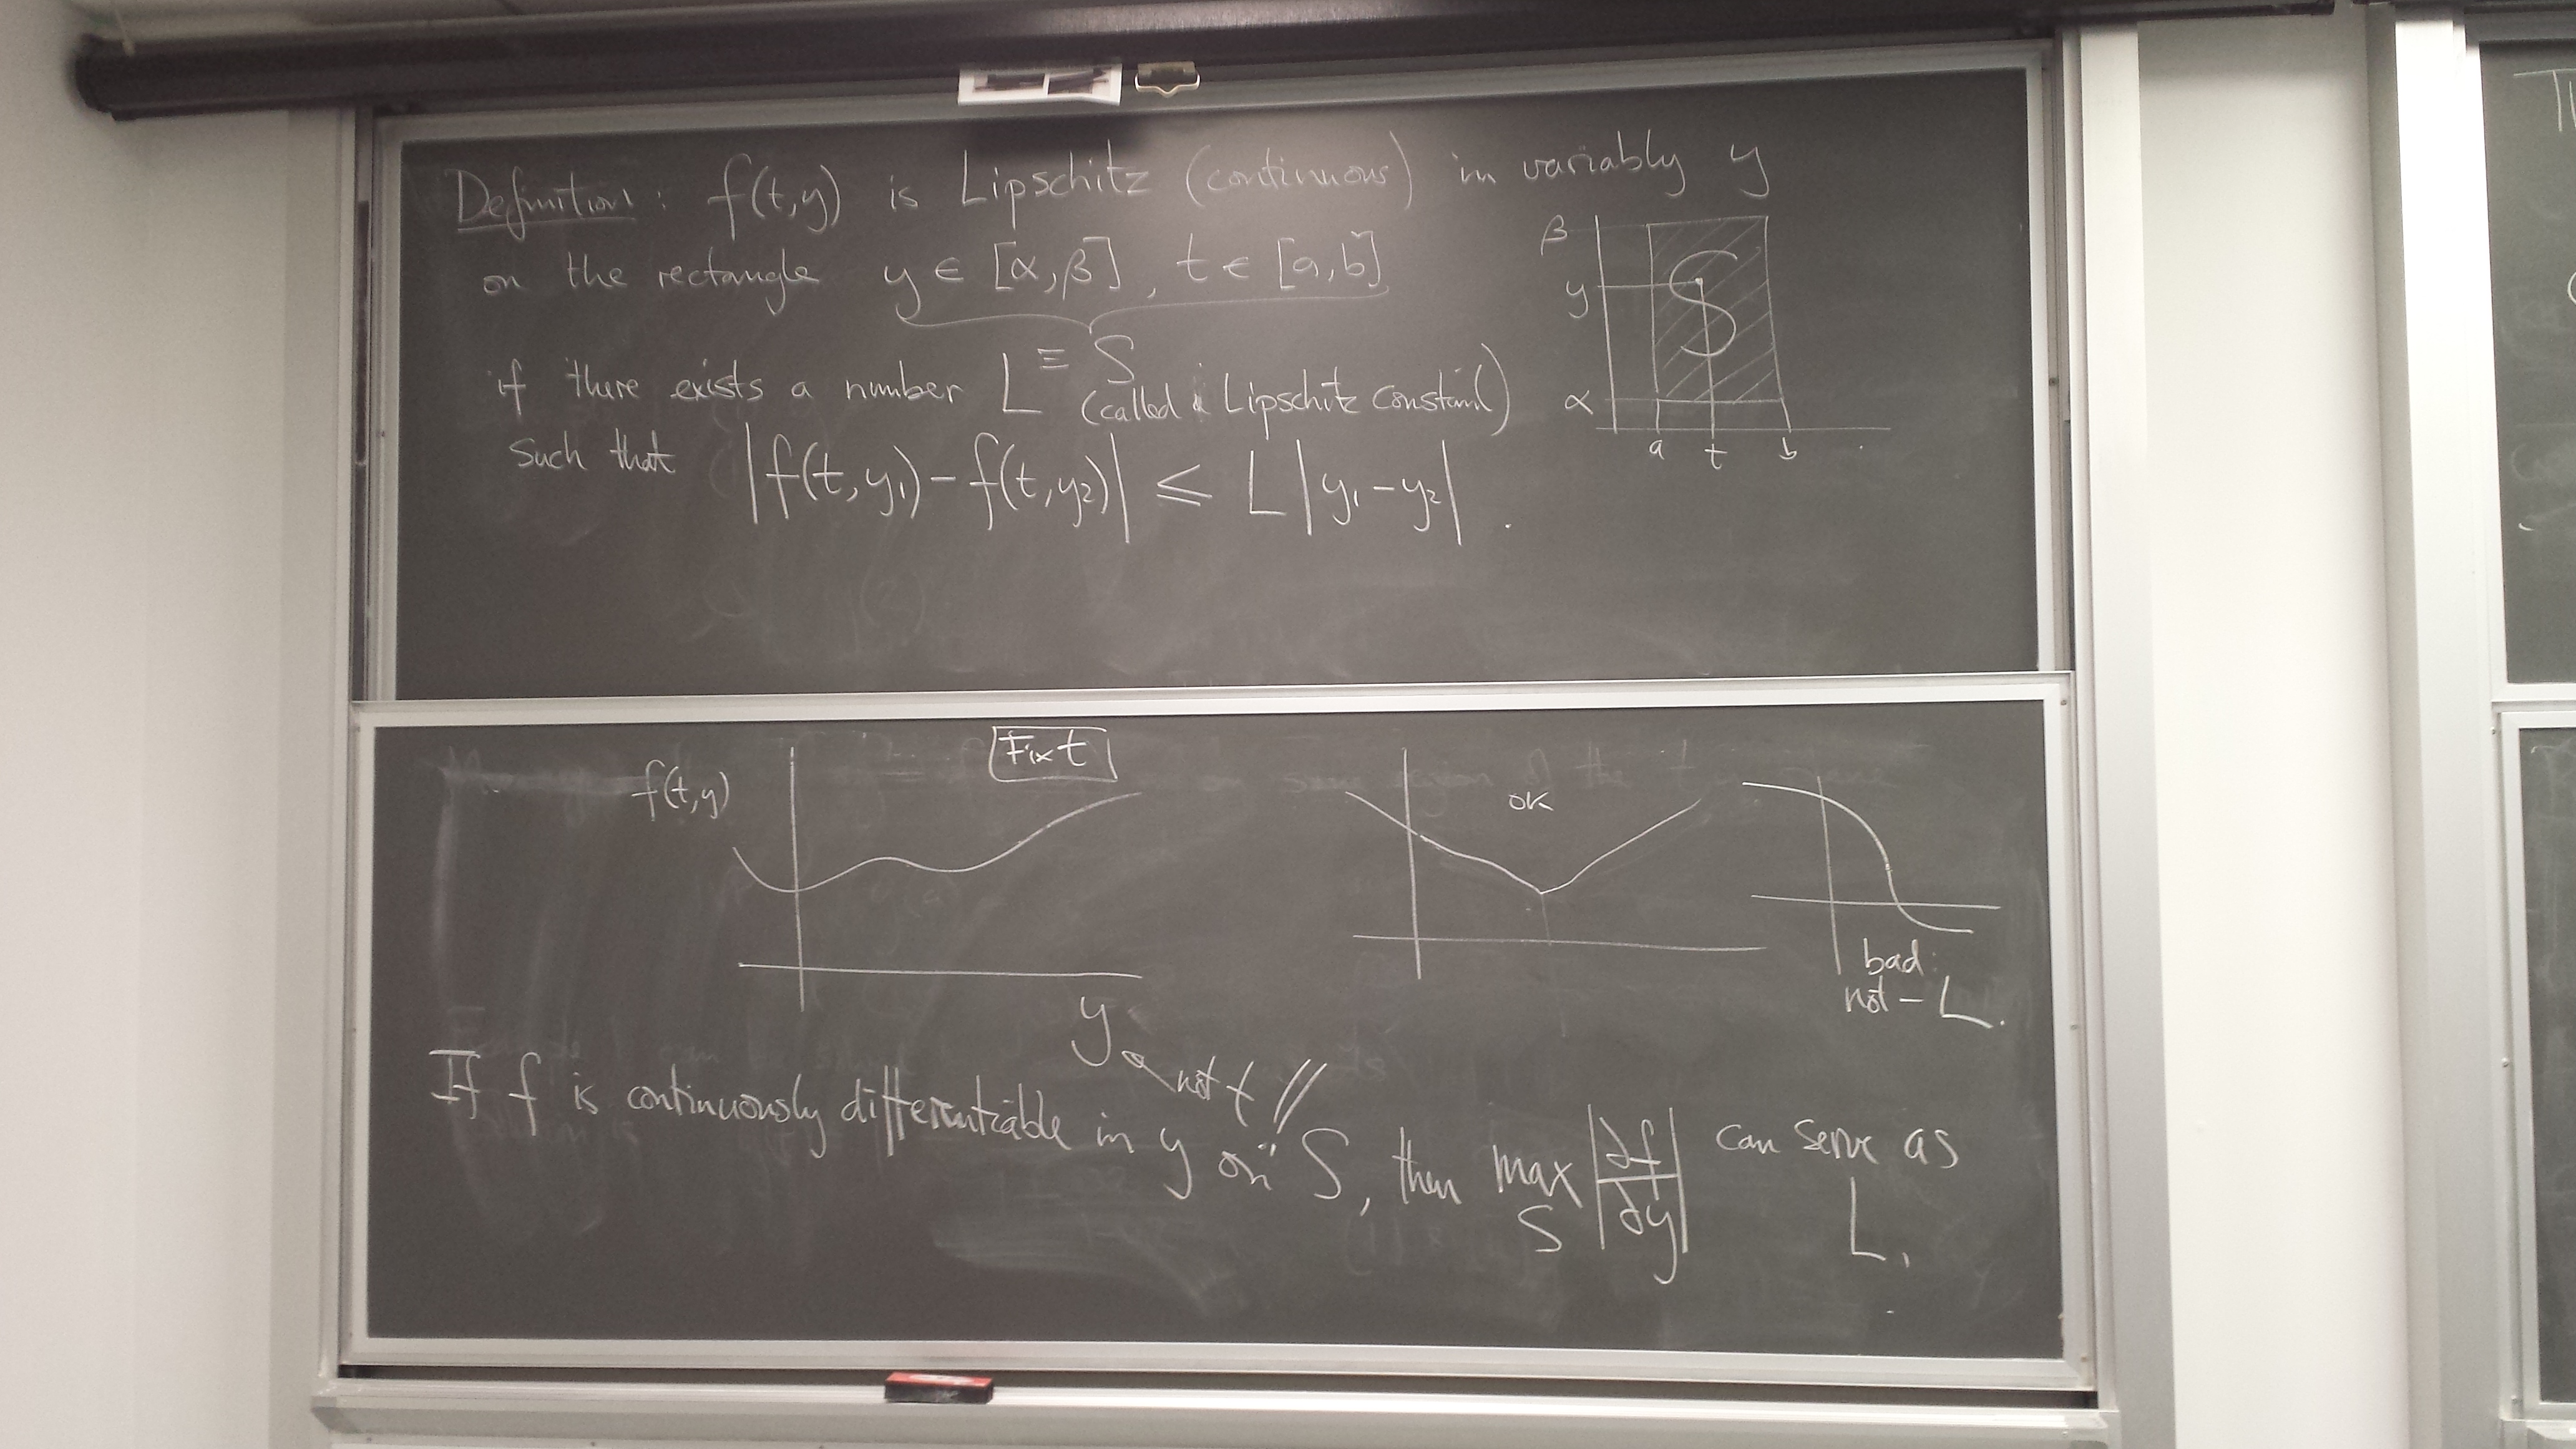 Definition: f(t,y) is Lipschitz (continuous) in variably y
on the rectangle y ∈ [α,β], t ∈ [a,b]
≡ S
if there exists a number L (called Lipschitz constant)
such that |f(t,y₁) - f(t,y₂)| ≤ L |y₁ - y₂|.
β
y
α
S
a t b
Fix t
f(t,y)
y
not t //
OK
bad:
not - L.
If f is continuously differentiable in y on S, then max |∂f/∂y| can serve as
S
L.